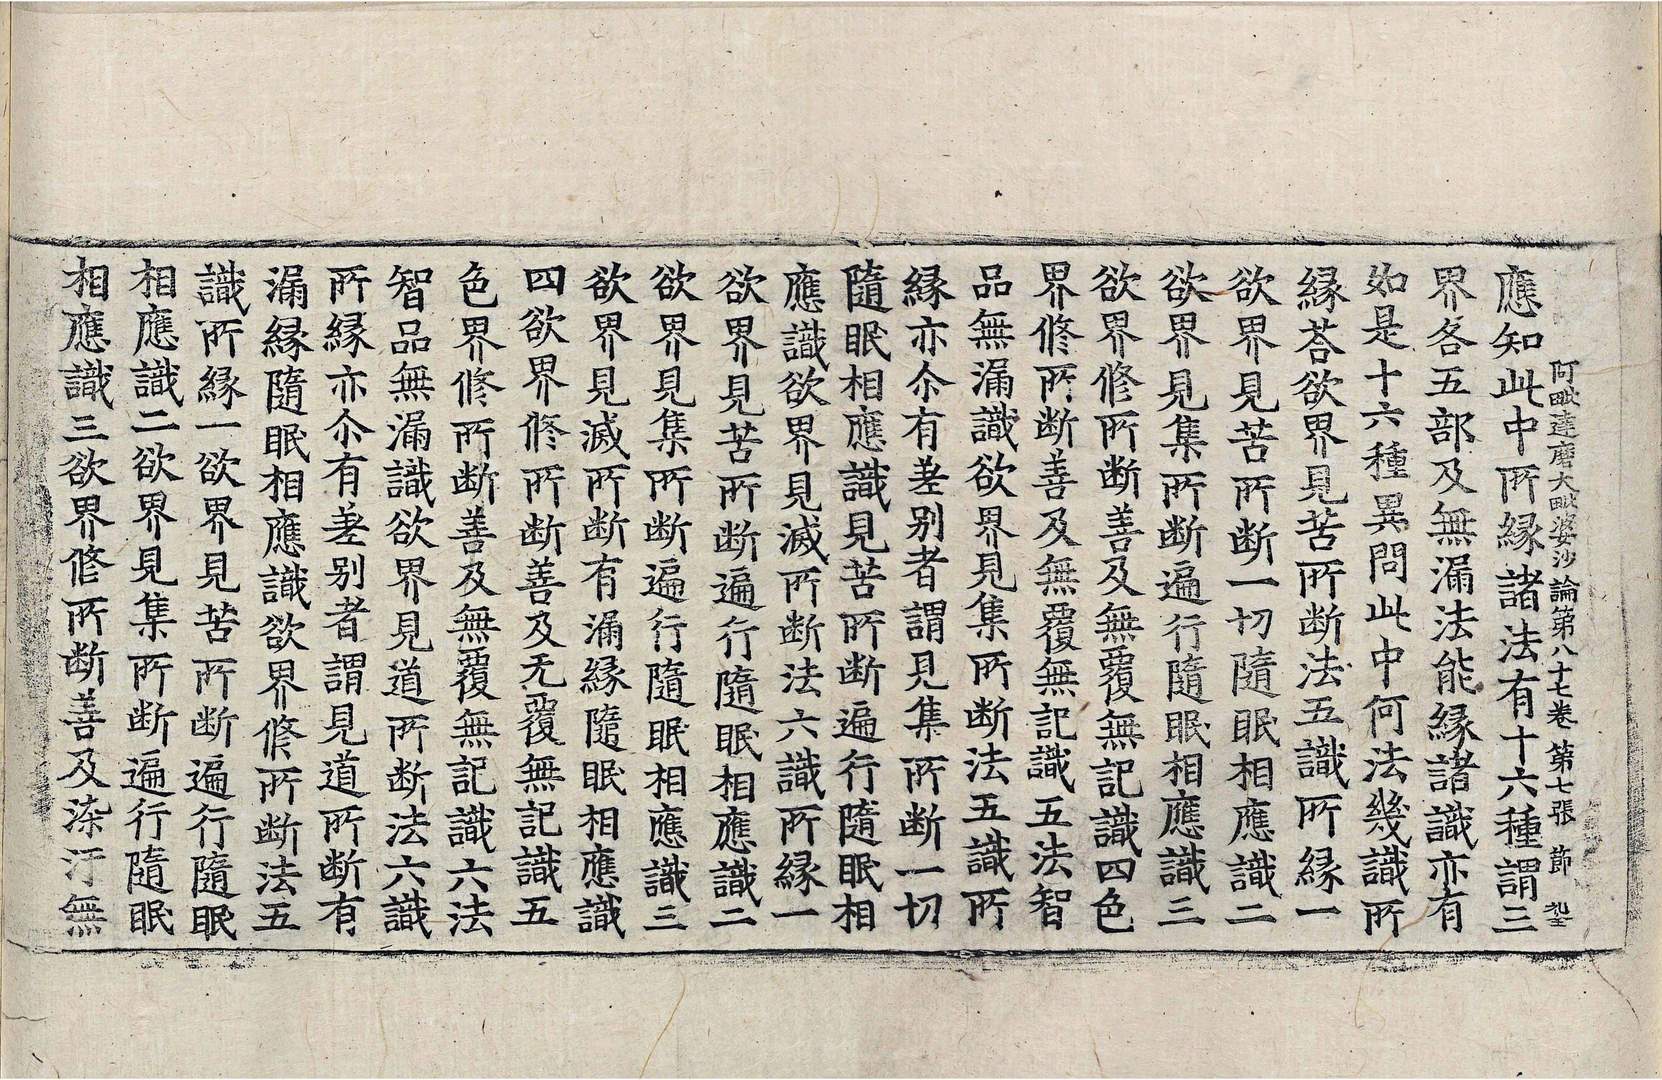 阿毗達磨大毗婆沙論第八十七卷 第七張 節
應知此中所緣諸法有十六種謂三
界各五部及無漏法能緣諸識亦有
如是十六種異問此中何法幾識所
緣荅欲界見苦所断法五識所緣一
欲界見苦所断一切隨眠相應識二
欲界見集所断遍行隨眠相應識三
欲界修所断善及無覆無記識四色
界修所断善及無覆無記識五法智
品無漏識欲界見集所断法五識所
緣亦尒有差别者謂見集所断一切
隨眠相應識見苦所断遍行隨眠相
應識欲界見滅所断法六識所緣一
欲界見苦所断遍行隨眠相應識二
欲界見集所断遍行隨眠相應識三
欲界見滅所断有漏緣隨眠相應識
四欲界修所断善及无覆無記識五
色界修所断善及無覆無記識六法
智品無漏識欲界見道所断法六識
所緣亦尒有差别者謂見道所断有
漏緣隨眠相應識欲界修所断法五
識所緣一欲界見苦所断遍行隨眠
相應識二欲界見集所断遍行隨眠
相應識三欲界修所断善及染汙無